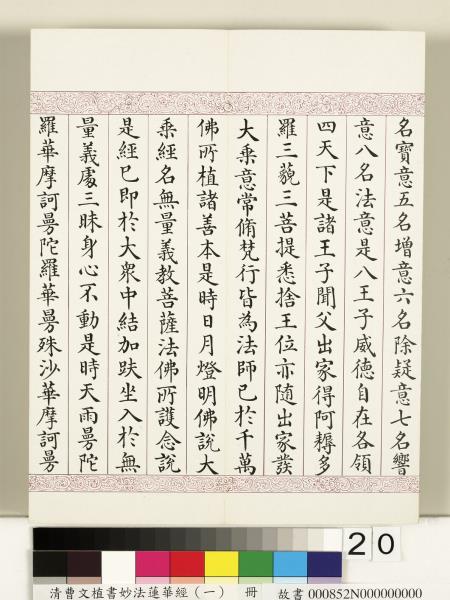 名寶意五名增意六名除疑意七名響
意八名法意是八王子威德自在各領
四天下是諸王子聞父出家得阿耨多
羅三藐三菩提悉捨王位亦隨出家發
大乘意常脩梵行皆為法師已於千萬
佛所植諸善本是時日月燈明佛說大
乘經名無量義教菩薩法佛所護念說
是經已即於大眾中結加趺坐入於無
量義處三昧身心不動是時天雨曼陀
羅華摩訶曼陀羅華曼殊沙華摩訶曼
20
清曹文植書妙法蓮華經(一) 冊 故書 000852N000000000